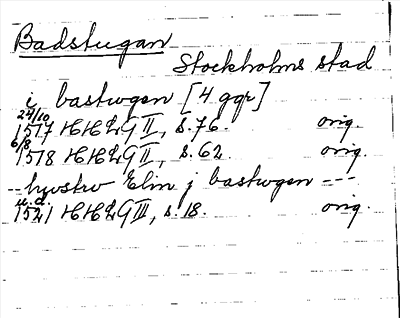 Badstugan
Stockholms stad
i bastwgen [4 ggr]
24/10 1517 HHLG II, s. 76. orig.
6/8 1518 HHLG II, s. 62. orig.
-- hvstrv Elin j bastwgen ---
u.d. 1521 HHLG III, s. 18. orig.